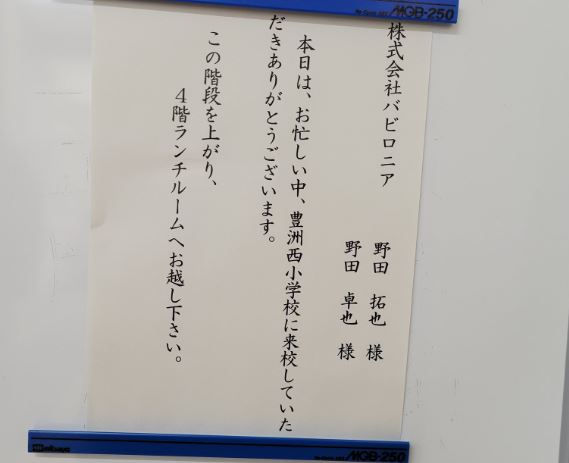 MGB-250
株式会社バビロニア
野田 拓也 様
野田 卓也 様
本日は、お忙しい中、豊洲西小学校に来校していた
だきありがとうございます。
この階段を上がり、
4階ランチルームへお越し下さい。
MGB-250